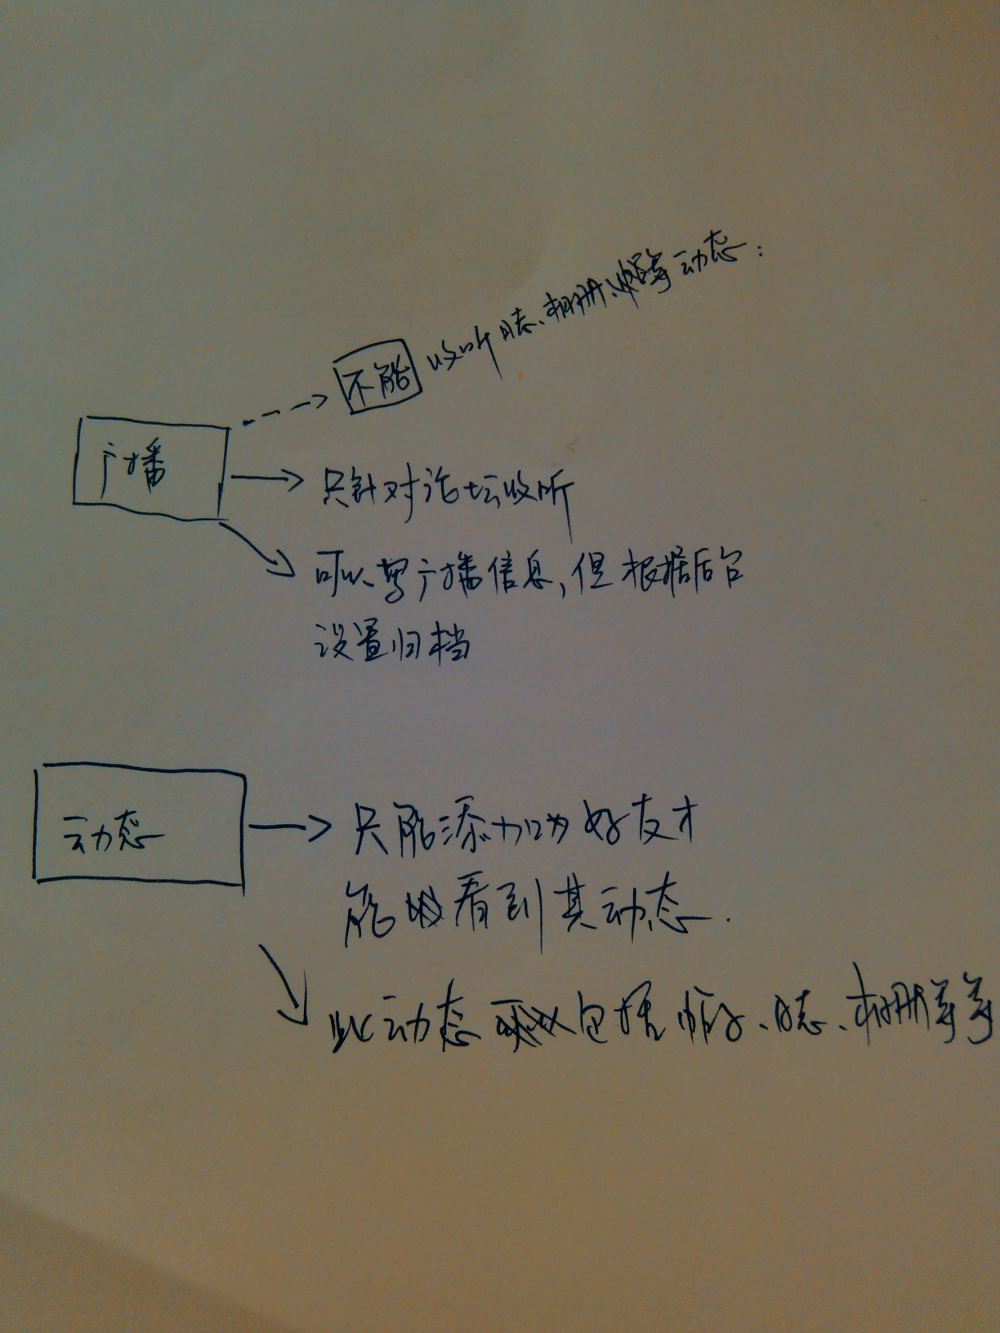 不能 收听日志、相册、等动态:
广播
只针对论坛收听
可以写广播信息,但根据后台
设置归档
动态
只能添加为好友才
能看到其动态.
此动态包括帖子、日志、相册等等